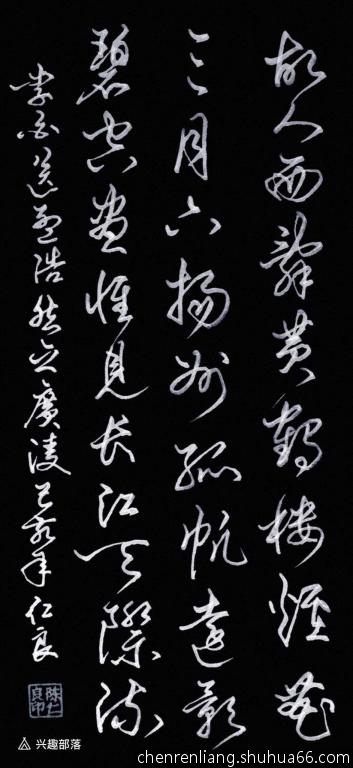 故人西辭黄鶴楼煙花
三月下揚州孤帆遠影
碧空盡惟見长江天際流
李白送孟浩然之廣陵己亥年仁良
陈仁良印
兴趣部落
chenrenliang.shuhua66.com